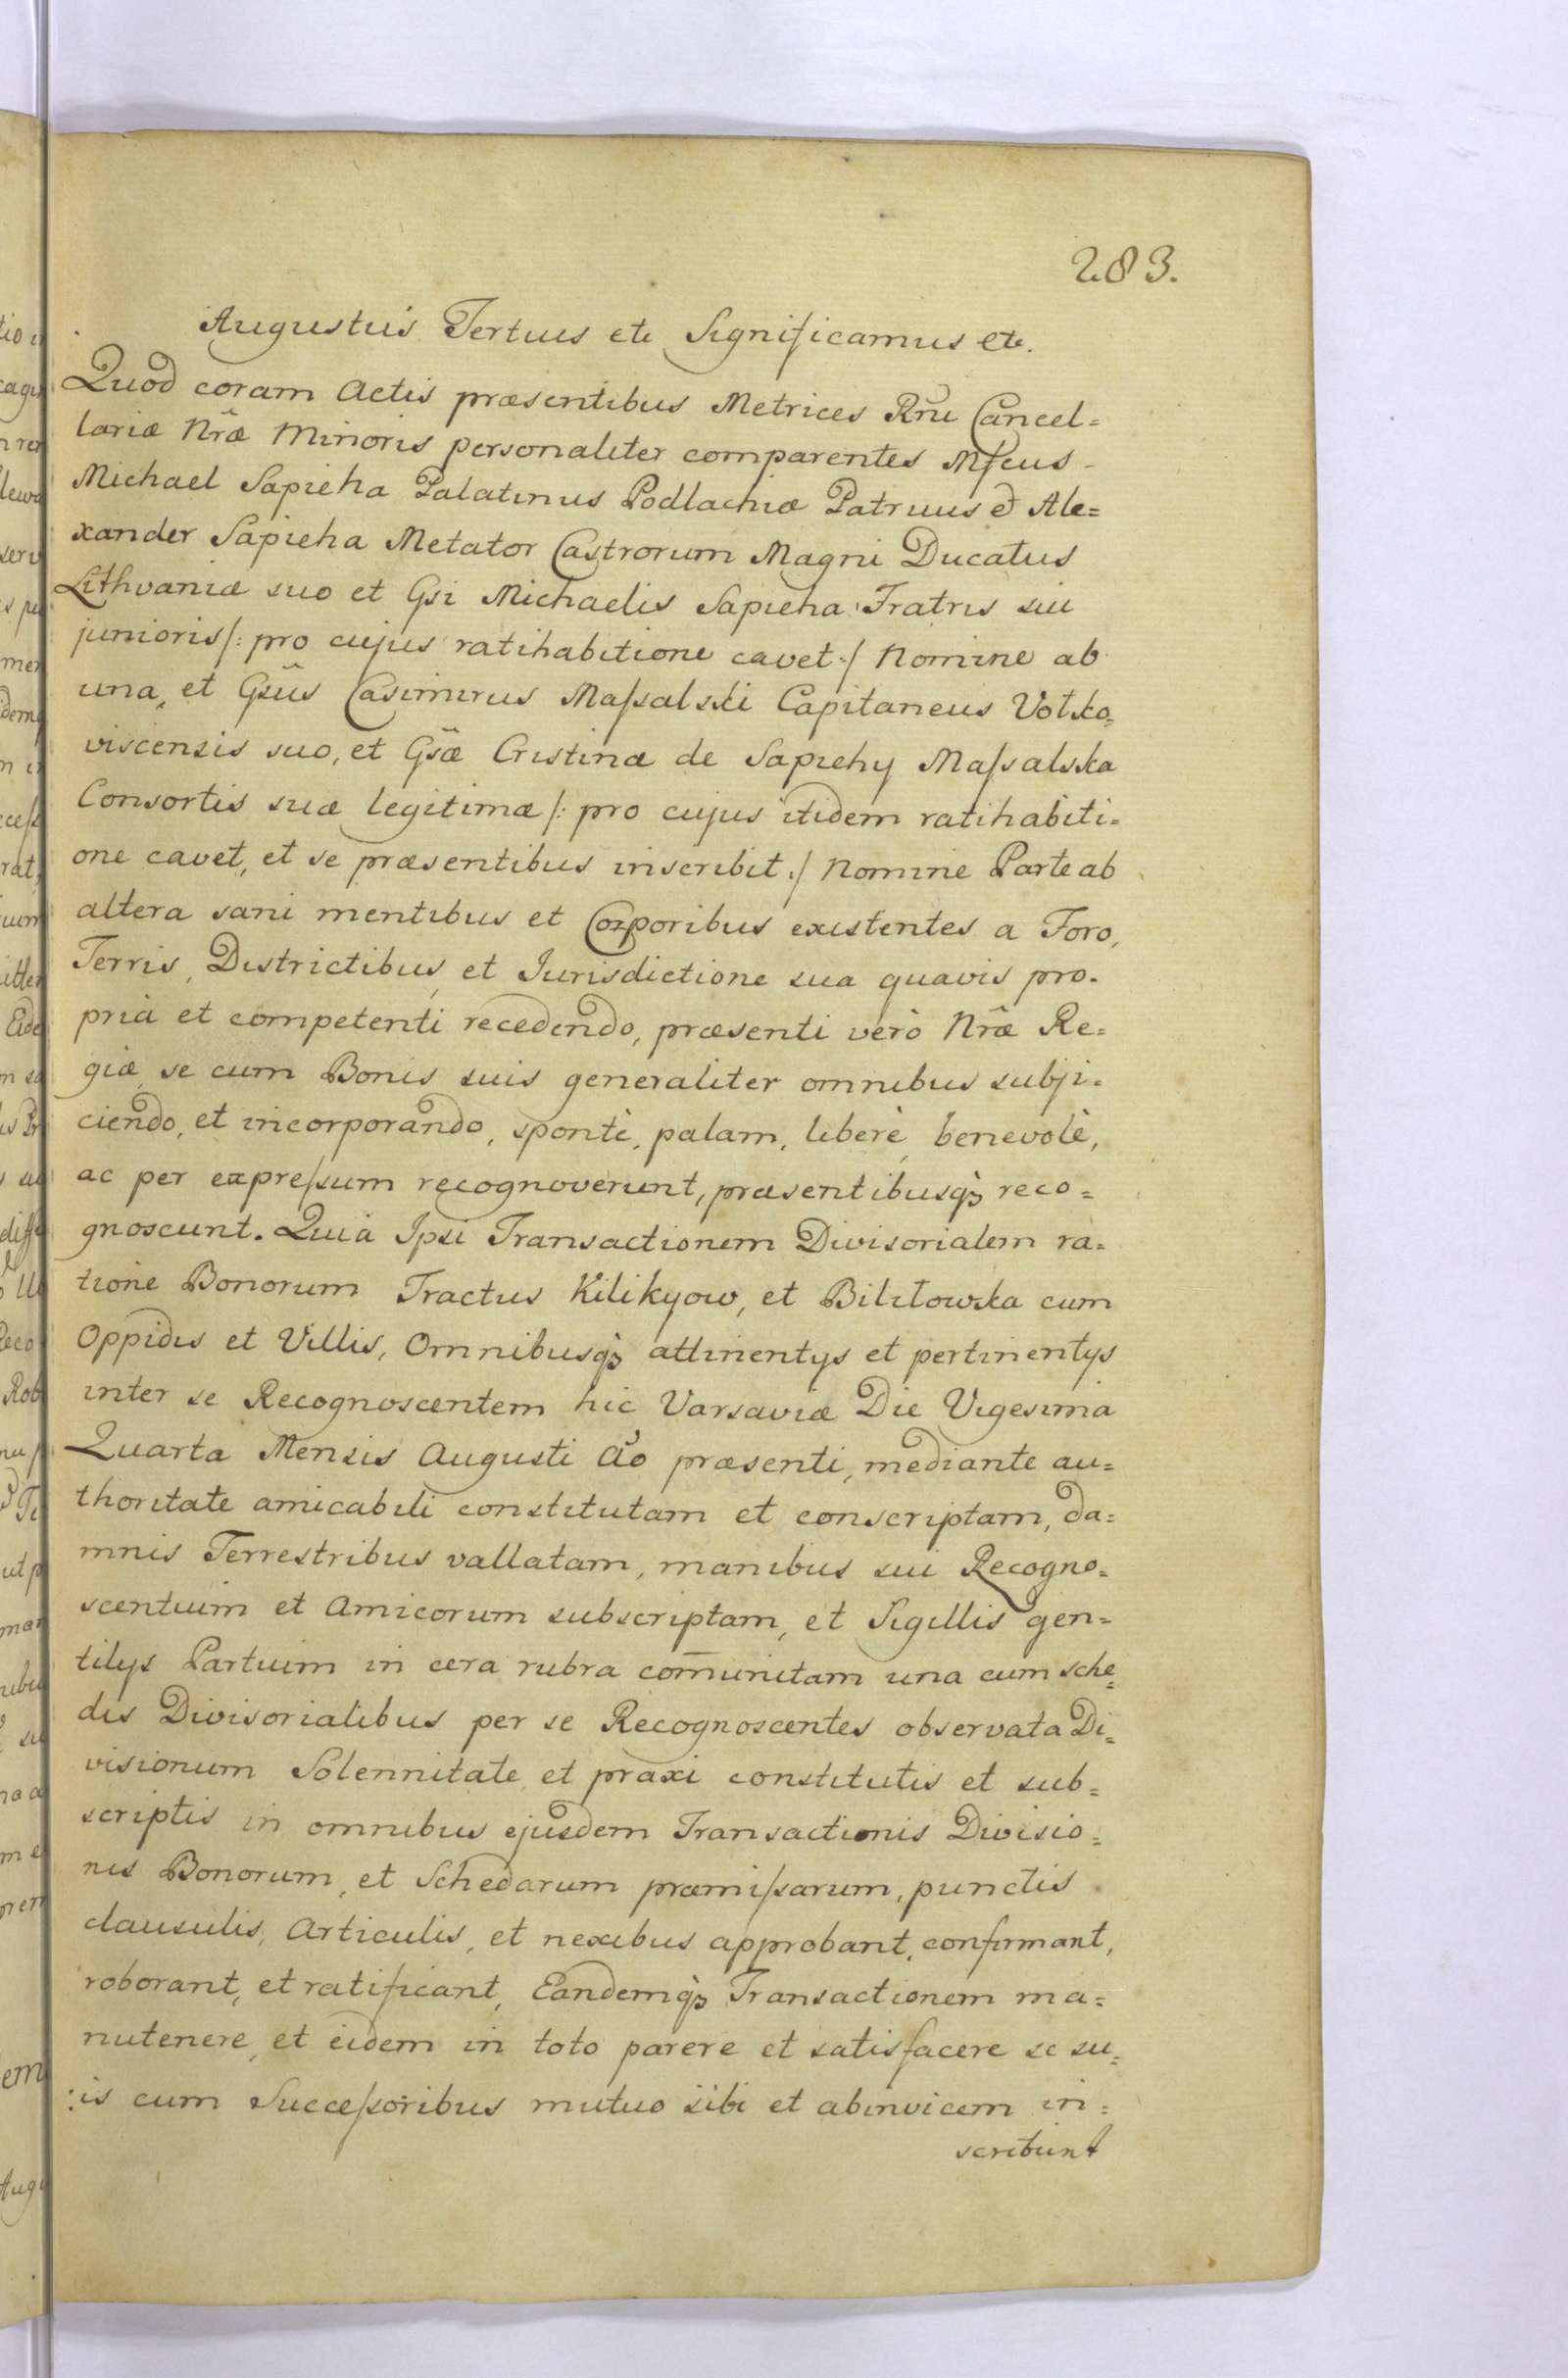 283.
Augustus Tertius etc Significamus etc.
Quod coram Actis præsentibus Metrices Rñi Cancel=
lariæ Nræ Minoris personaliter comparentes Mfcus
Michael Sapieha Palatinus Podlachiæ Patruus et Ale=
xander Sapieha Metator Castrorum Magni Ducatus
Lithvaniæ suo et Gsi Michaelis Sapieha Fratris sui
junioris /: pro cujus ratihabitione cavet :/ Nomine ab
una, et Gsus Casimirus Maſsalski Capitaneus Volko=
viscensis suo, et Gsæ Cristinæ de Sapiehy Maſsalska
Consortis suæ legitimæ /: pro cujus itidem ratihabiti=
one cavet, et se præsentibus inscribit :/ Nomine Parte ab
altera sani mentibus et Corporibus existentes a Foro,
Terris, Districtibus, et Jurisdictione sua quavis pro=
pria et competenti recedendo, præsenti verò Nræ Re=
giæ, se cum Bonis suis generaliter omnibus subji=
ciendo, et incorporando, spontè, palam, liberè, benevolè,
ac per expreſsum recognoverunt, præsentibusq; reco=
gnoscunt. Quia Ipsi Transactionem Divisorialem ra=
tione Bonorum Tractus Kilikyow, et Biliłowska cum
Oppidis et Villis, Omnibusq; attinentys et pertinentys
inter se Recognoscentem hic Varsaviæ Die Vigesima
Quarta Mensis Augusti Aõ præsenti, mediante au=
thoritate amicabili constitutam et conscriptam, da=
mnis Terrestribus vallatam, manibus sui Recogno=
scentium et Amicorum subscriptam, et Sigillis gen=
tilys Partium in cera rubra com̄unitam una cum sche=
dis Divisorialibus per se Recognoscentes observata Di=
visionum Solennitate et praxi constitutis et sub=
scriptis in omnibus ejusdem Transactionis Divisio=
nis Bonorum, et Schedarum præmiſsarum, punctis
clausulis, Articulis, et nexibus approbant, confirmant,
roborant, et ratificant, Eandemq; Transactionem ma=
nutenere, et eidem in toto parere et satisfacere se su=
:is cum Succeſsoribus mutuo sibi et abinvicem in=
scribunt